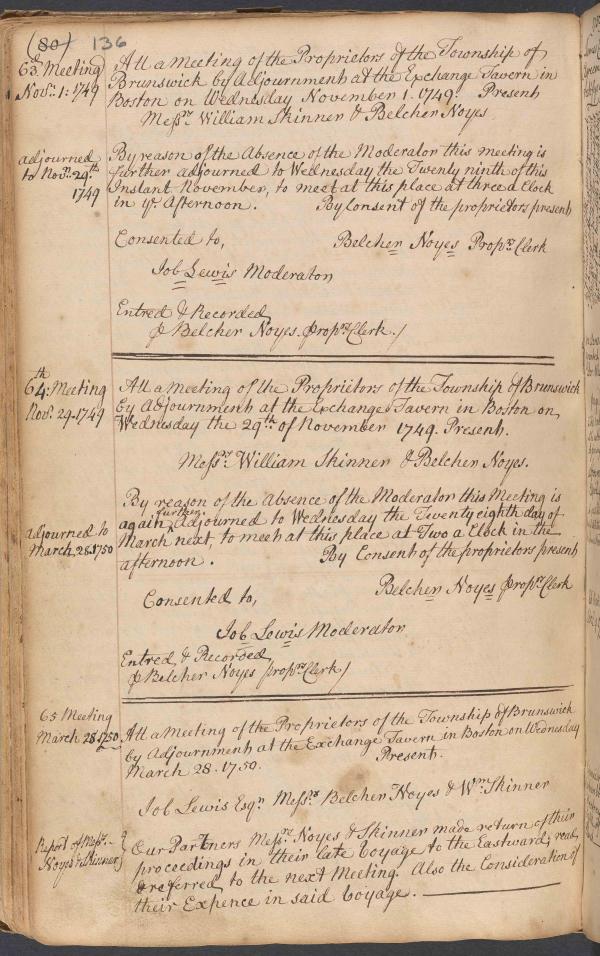 (80) 136
63d. Meeting
Novr. 1: 1749
Att a Meeting of the Proprietors of the Township of
Brunswick by Adjournment at the Exchange Tavern in
Boston on Wednsday November 1. 1749. Present
Messrs. William Skinner & Belcher Noyes
adjourned
to Novr. 29th
1749
By reason of the Absence of the Moderator this meeting is
further adjourned to Wednesday the Twenty ninth of this
Instant November, to meet at this place at three a Clock
in ye. Afternoon. By Consent of the proprietors present
Consented to, Belcher Noyes Propr. Clerk
Job Lewis Moderator
Entred & Recorded
p Belcher Noyes. proprs. Clerk./
64th: Meeting
Novr. 29. 1749
Att a Meeting of the Proprietors of the Township of Brunswick
by Adjournment at the Exchange Tavern in Boston on
Wednesday the 29th of November 1749. Present.
Messrs. William Skinner & Belcher Noyes.
adjourned to
March 28. 1750
By reason of the Absence of the Moderator this Meeting is
again further Adjourned to Wednesday the Twenty eighth day of
March next, to meet at this place at Two a Clock in the
afternoon. By Consent of the proprietors present
Belcher Noyes propr. Clerk
Consented to,
Job Lewis Moderator
Entred & Recorded
p Belcher Noyes proprs Clerk/
65 Meeting
March 28. 1750.
Att a Meeting of the Proprietors of the Township of Brunswick
by Adjournment at the Exchange Tavern in Boston on Wednesday
March 28. 1750. Present.
Job Lewis Esqr. Messrs. Belcher Noyes & Wm. Skinner
Report of Messrs.
Noyes & Skinner
Our Partners Messrs. Noyes & Skinner made return of their
proceedings in their late Voyage to the Eastward, read,
& referred to the next Meeting. Also the Consideration of
their Expence in said Voyage.